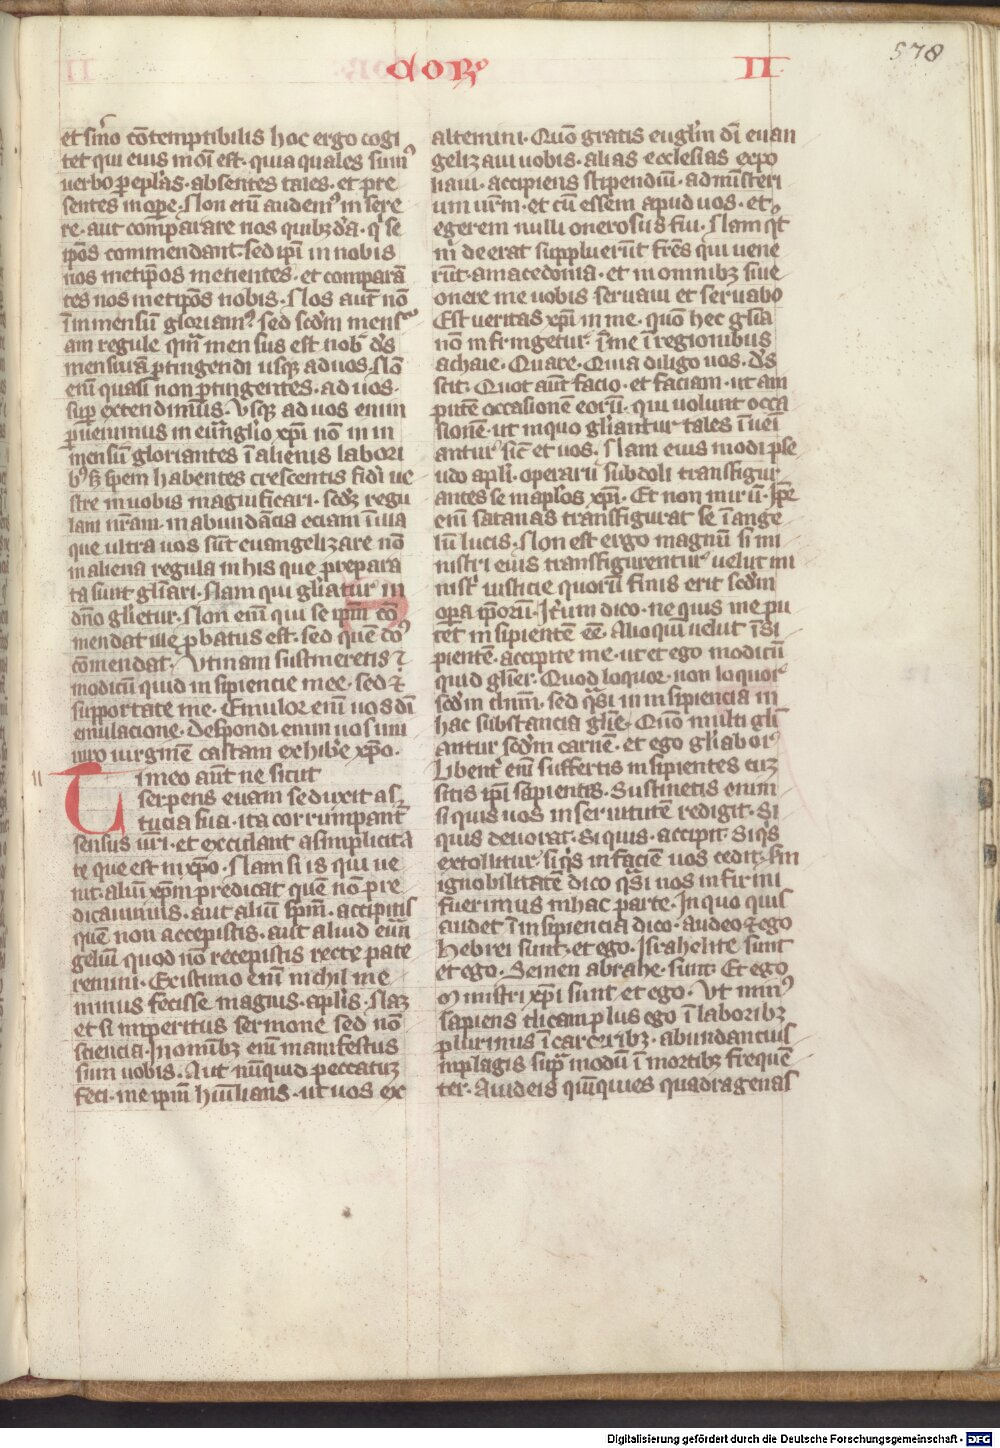 578
cor̄ II
et sm̄o cōtemptibilis hoc ergo cogi
tet qui eius mōi est. quia quales sum⁹
uerbo p eplās. absentes tales. et pre
sentes in ope. Non enī audem⁹ in sere
re. aut comparare nos quibzdā. q̇ se
ipōs commendant. sed ipī in nobis
nos metipōs metientes. et comparā
tes nos metipōs nobis. Nos aut̄ nō
ī inmensū gloriam⁹. sed scdm̄ mens⁹
am regule qm̄ mensus est nob̄ dš
mensurā ptingendi usqz ad uos. Nō
enī quasi non ptingentes. ad uos.
sup extendimus. Vsqz ad uos enim
puenimus in euāglio xpī nō in in
mensū gloriantes ī alienis labori
b⁹ š spem habentes crescentis fidī ue
stre in uobis magnificari. scdz regu
lam nr̄am. in abundācia eciam ī illa
que ultra uos sūt euangelizare nō
in aliena regula in his que prepara
ta sunt gliari. Nam qui gliatur in
dn̄o glietur. Non enī qui se ipm̄ cō
mendat ille pbatus est. sed quē do⁹
cōmendat. Vtinam sustineretis
modicū quid in sipiencie mee. sed ⁊
supportate me. Emulor enī uos dī
emulacione. Despondi enim uos uni
uiro uirginē castam exhibe xp̄o.
11 Timeo aut̄ ne sicut
serpens euam seduxit as
tucia sua. ita corrumpant
sensus ur̄i. et excidant a simplicita
te que est in xp̄o. Nam si is qui ue
nit. aliū xpm̄ predicat quē nō pre
dicauimus. aut aliū spm̄. accipitis
quē non accepistis. aut aliud euā
geliū quod nō recepistis recte pate
remini. Existimo enī nichil me
minus fecisse magnis. aplis. Naz
et si imperitus sermone sed nō
sciencia. In omībz enī manifestus
sum uobis. Aut nūquid peccatuz
feci. me ipm̄ hūilians. ut uos ex
altemini. Quō gratis euglīn dī euan
gelizaui uobis. alias ecclesias expo
liaui. accipiens stipendiū. ad misteri
um ur̄m. et cū essem apud uos. et
egerem nulli onerosus fui. Nam qt̄
m̄ deerat suppluerūt frēs qui uene
rūt. a macedonia. et in omnibz siue
onere me uobis seruaui et seruabo
Est ueritas xpī in me. quō hec glīa
nō infringetur. ī me ī regionibus
achaie. Quare. Quia diligo uos. dš
scit. Quot aūt facio. et faciam. ut am
putē occasionē eorū. qui uolunt occa
sionē. ut in quo gliantur tales īuei
antur sic̄ et uos. Nam eius modi pse
udo apli. operarii subdoli transfigur
antes se in aplos xpī. Et non mirū. Ipe
enī satanas transfigurat se ī ange
lū lucis. Non est ergo magnū si mi
nistri eius transfigurentur uelut mi
nistr̄ iusticie quorū finis erit scdm̄
opa ipōrū. Itum dico. ne quis me pu
tet in sipientē eē. Alioqui uelut īsi
pientē. accipite me. ut et ego modicū
quid glier. Quod loquor. non loquor
scdm̄ dnm̄. sed qsi in insipiencia in
hac substancia glie. Quō multi gli
antur scdm̄ carnē. et ego gliabor.
Libent enī suffertis insipientes cuz
sitis ipī sapientes. Sustinetis enim
si quis uos in seruitutē redigit. Si
quis deuorat. Si quis. accipit. Si qs
extollitur. si qs in faciē uos cedit. Sm
ignobilitatē dico qsi nos infirmi
fuerimus in hac parte. In quo quis
audet ī insipiencia dico. audeo ⁊ ego
Hebrei sunt. et ego. Israhelite sunt
et ego. Semen abrahe. sunt. Et ego
Ministri xpī sunt et ego. Vt min⁹
sapiens dicam plus ego ī laboribz
plurimus ī carceribz. abundancius
in plagis supͣ modū ī mortibz frequē
ter. A iudeis quīquies quadragenas
Digitalisierung gefördert durch die Deutsche Forschungsgemeinschaft - DFG